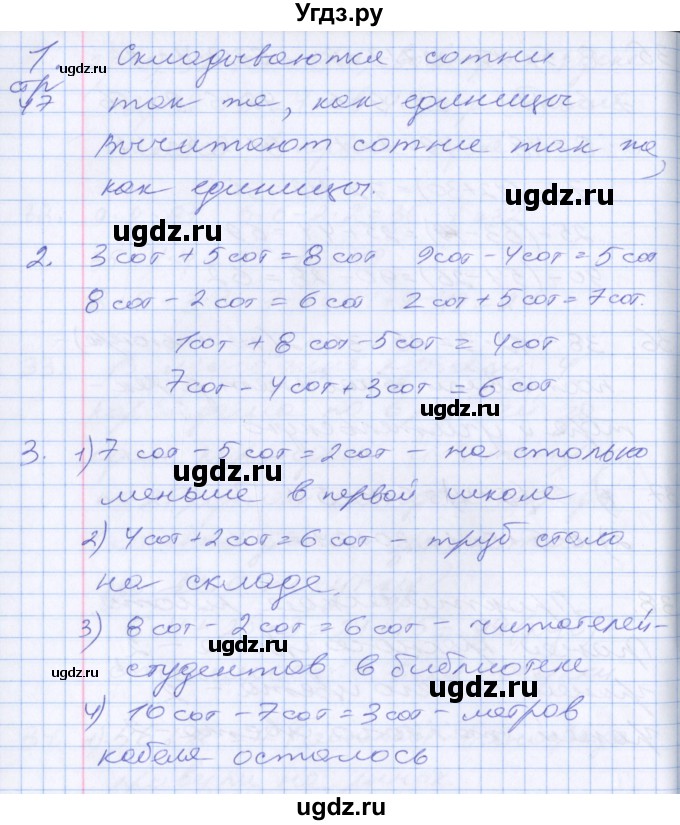 Угдз.ру
1. Складываются сотни
стр 47 так же, как единицы
Вычитают сотни так же,
как единицы.
2. 3 сот + 5 сот = 8 сот 9 сот - 4 сот = 5 сот
8 сот - 2 сот = 6 сот 2 сот + 5 сот = 7 сот.
1 сот + 8 сот - 5 сот = 4 сот
7 сот - 4 сот + 3 сот = 6 сот
3. 1) 7 сот - 5 сот = 2 сот - на столько
меньше в первой школе
2) 4 сот + 2 сот = 6 сот - труб стало
на складе.
3) 8 сот - 2 сот = 6 сот - читателей-
студентов в библиотеке
4) 10 сот - 7 сот = 3 сот - метров
кабеля осталось
ugdz.ru
ugdz.ru
ugdz.ru
ugdz.ru
ugdz.ru
ugdz.ru
ugdz.ru
ugdz.ru
ugdz.ru
ugdz.ru
ugdz.ru
ugdz.ru